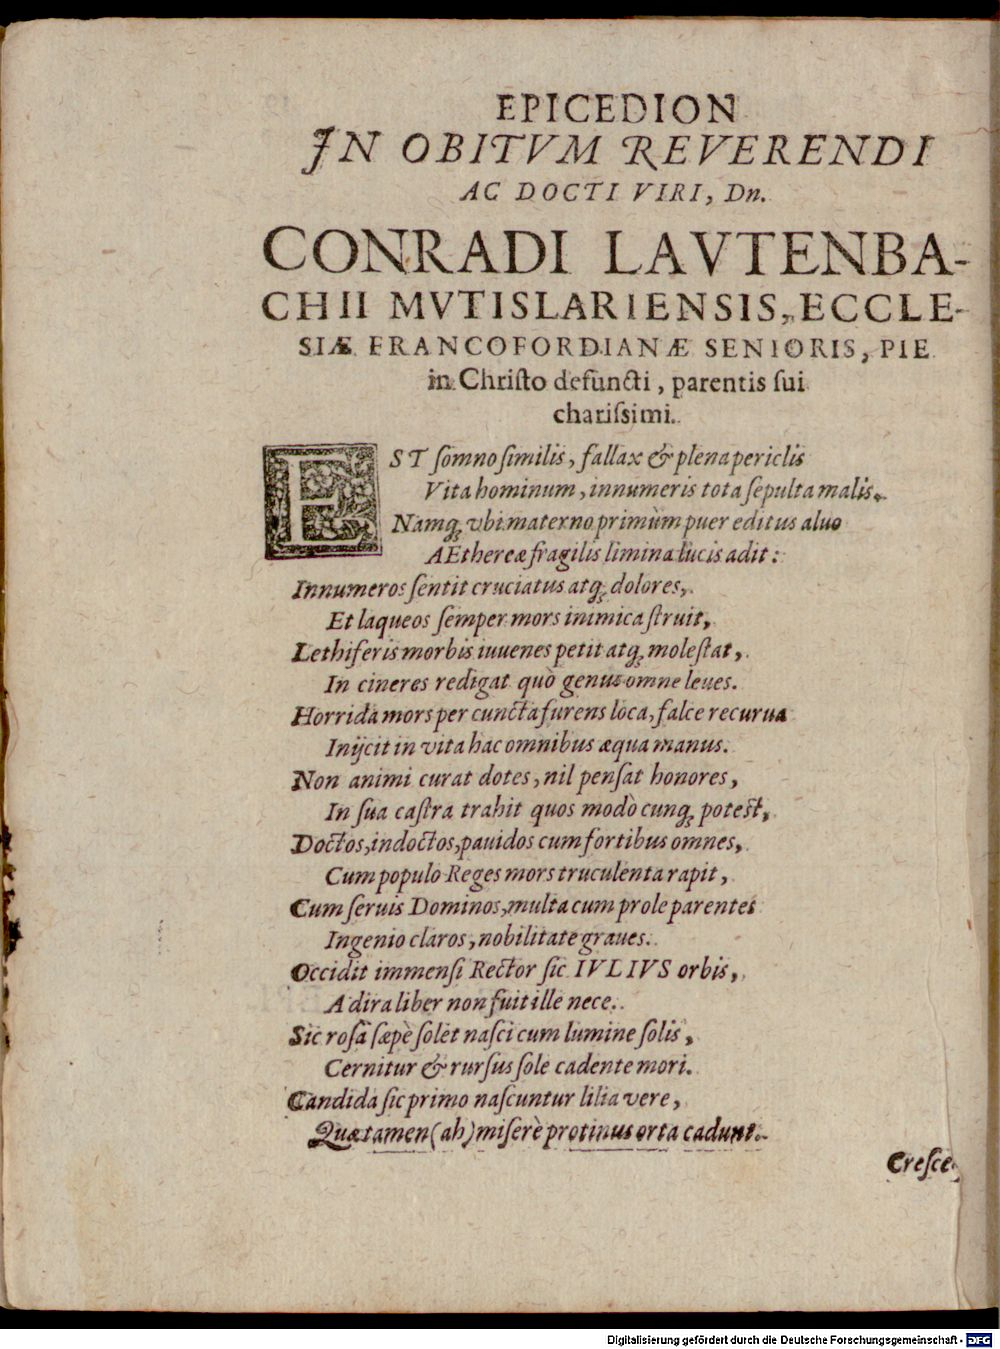 EPICEDION
IN OBITVM REVERENDI
AC DOCTI VIRI, Dn.
CONRADI LAVTENBA-
CHII MVTISLARIENSIS, ECCLE-
SIÆ FRANCOFORDIANÆ SENIORIS, PIE
in Chriſto defuncti, parentis ſui
chariſsimi.
EST ſomno ſimilis, fallax & plena periclis
Vita hominum, innumeris tota ſepulta malis.
Namq; vbi materno primùm puer editus aluo
AEthereæ fragilis limina lucis adit:
Innumeros ſentit cruciatus atq; dolores,
Et laqueos ſemper mors inimica ſtruit,
Lethiferis morbis iuuenes petit atq; moleſtat,
In cineres redigat quò genus omne leues.
Horrida mors per cuncta furens loca, falce recurua
Inijcit in vita hac omnibus æqua manus.
Non animi curat dotes, nil penſat honores,
In ſua caſtra trahit quos modò cunq; poteſt,
Doctos, indoctos, pauidos cum fortibus omnes,
Cum populo Reges mors truculenta rapit,
Cum ſeruis Dominos, multa cum prole parentes
Ingenio claros, nobilitate graues.
Occidit immenſi Rector ſic IVLIVS orbis,
A dira liber non fuit ille nece.
Sic roſa ſæpè ſolet naſci cum lumine ſolis,
Cernitur & rurſus ſole cadente mori.
Candida ſic primo naſcuntur lilia vere,
Quæ tamen (ah) miſerè protinus orta cadunt.
Creſce-
Digitalisierung gefördert durch die Deutsche Forschungsgemeinschaft - DFG